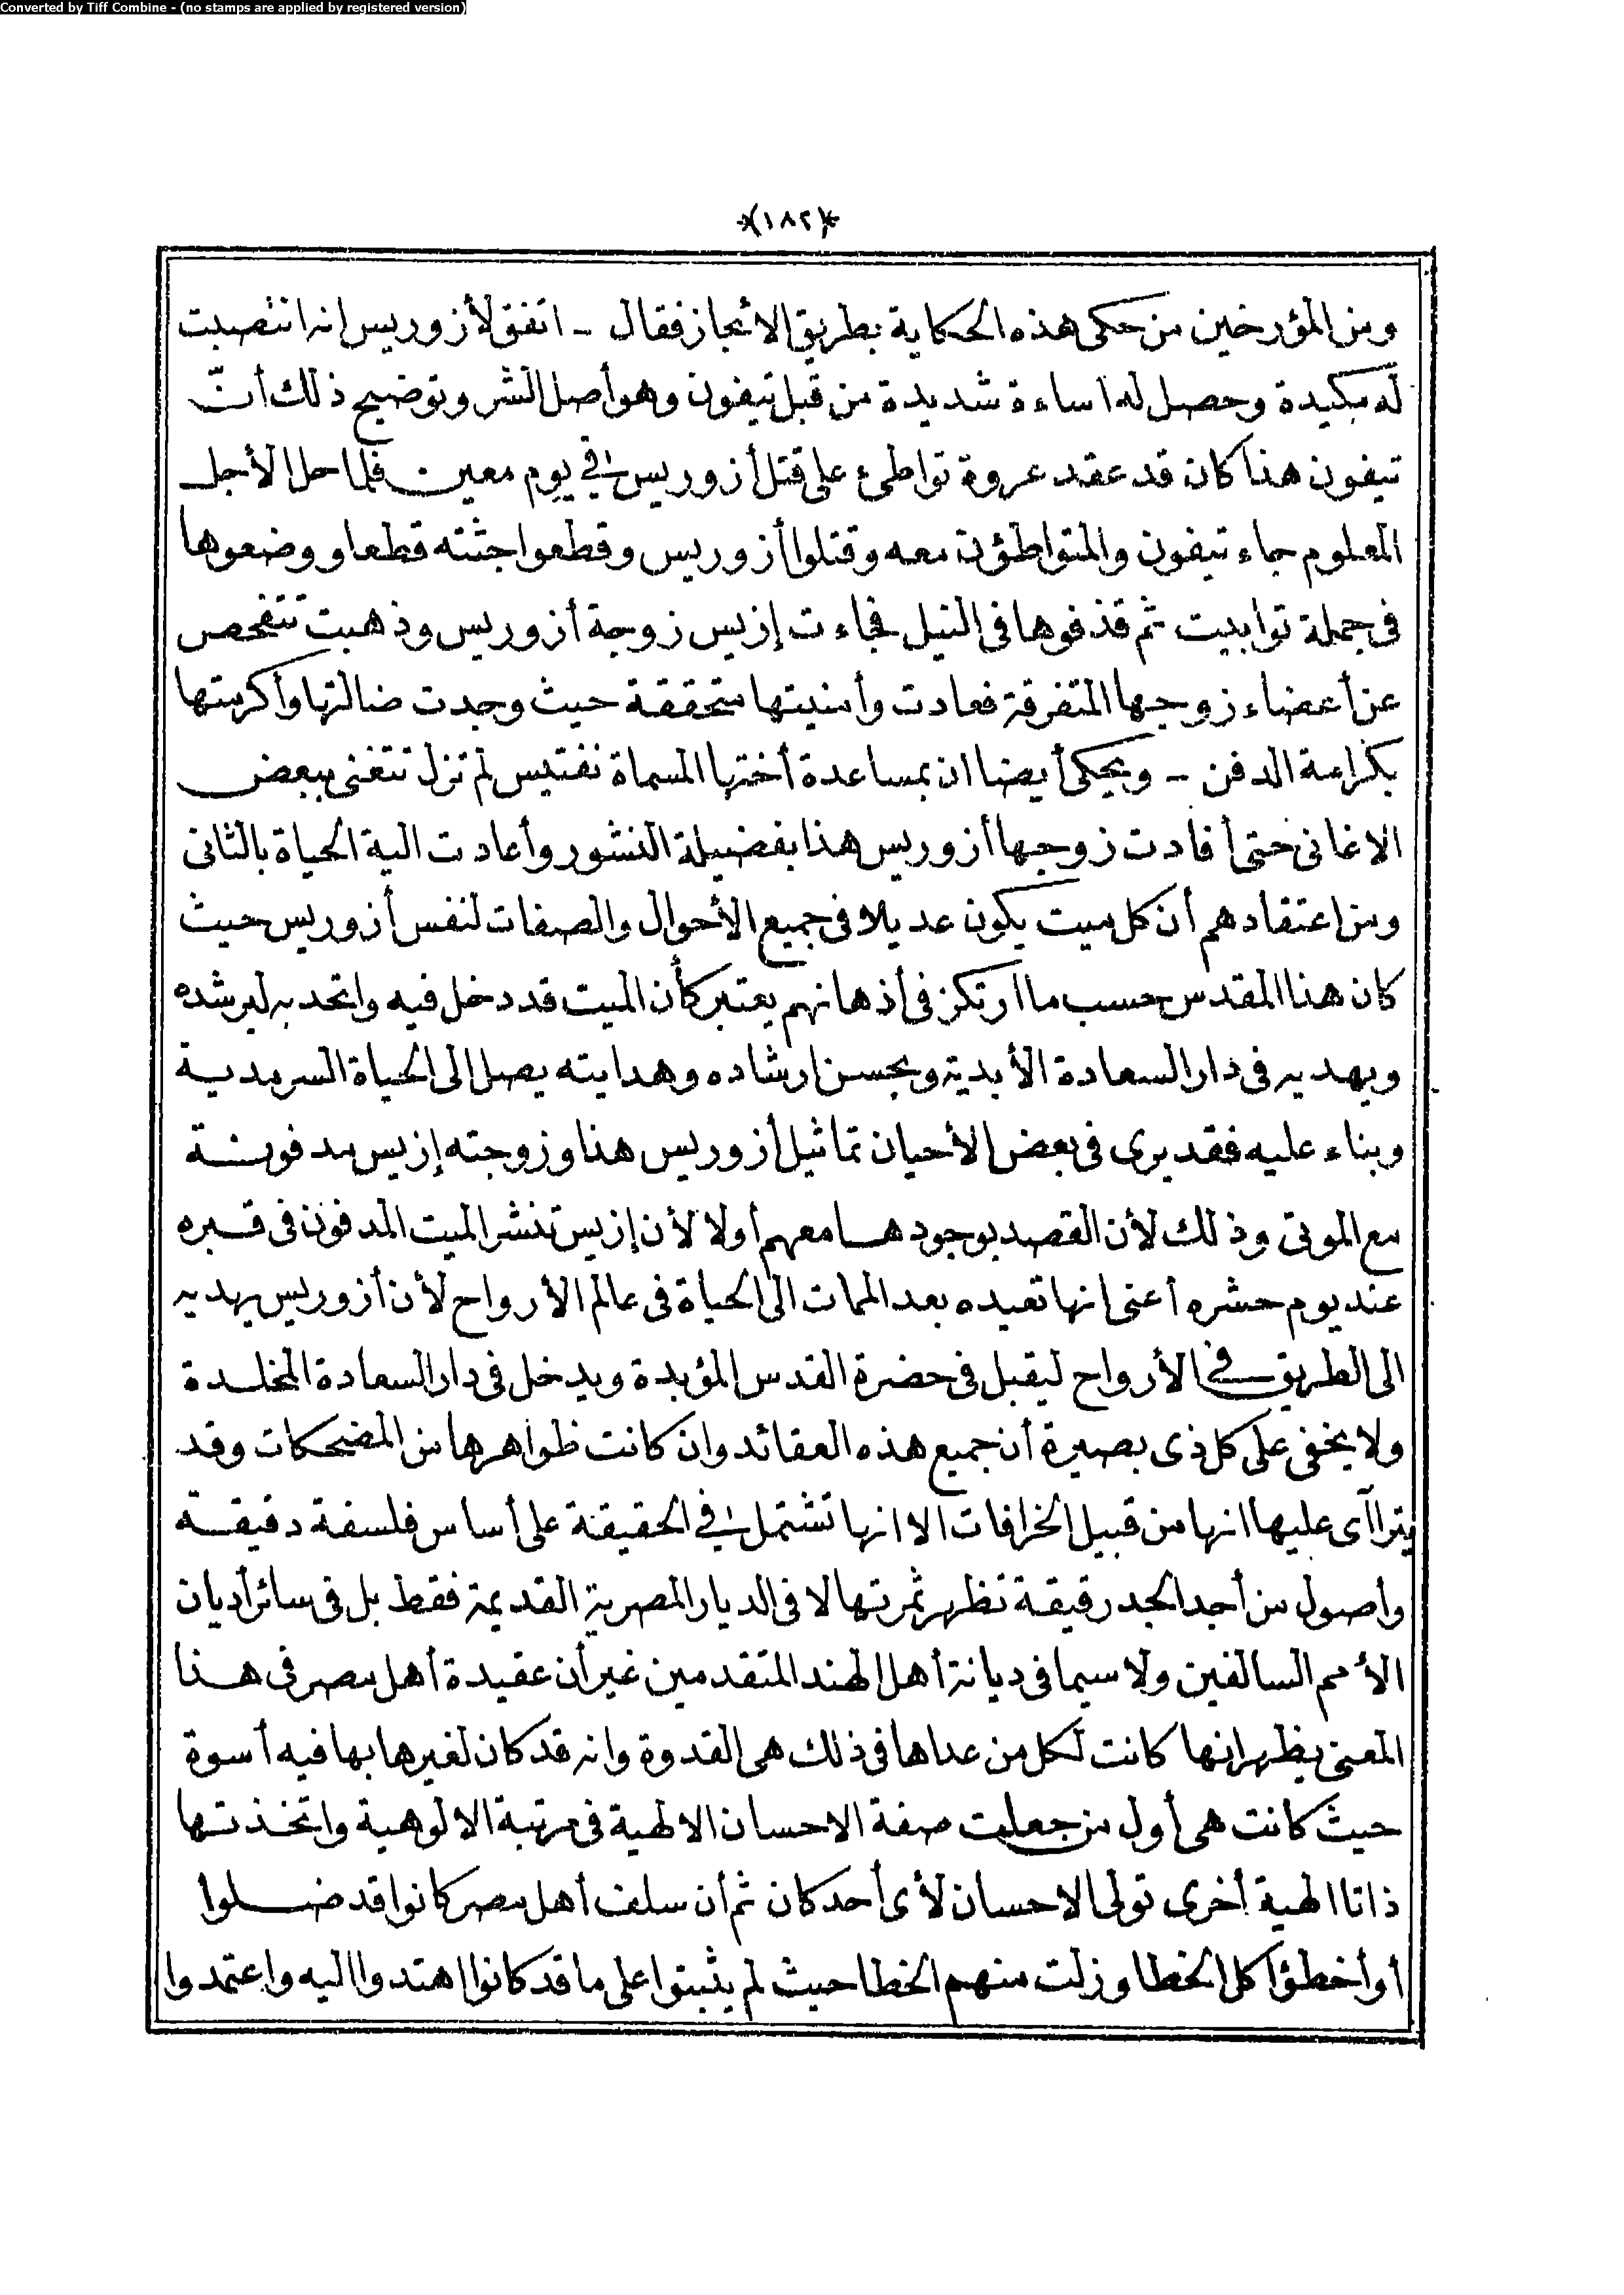 Converted by Tiff Combine - (no stamps are applied by registered version)
*(١٨٢)*
ومن المؤرخين من حكى هذه الحكاية بطريق الايجاز فقال ـ اتفق لأزوريس انه انتصبت
له مكيدة وحصل له اساءة شديدة من قبل تيفون وهو أصل الشر وتوضيح ذلك أنّ
تيفون هذا كان قد عقد عروة تواطئ على قتل أزوريس فى يوم معين فلما حل الأجل
المعلوم جاء تيفون والمتواطؤن معه وقتلوا أزوريس وقطعوا جثته قطعا ووضعوها
فى جملة توابيت ثم قذفوها فى النيل فجاءت إزيس زوجة أزوريس وذهبت تتفحص
عن أعضاء زوجها المتفرقة فعادت وأمنيتها متحققة حيث وجدت ضالتها وأكرمتها
بكرامة الدفن ـ ويحكى أيضا ان بمساعدة أختها المسماة نفتيس لم تزل تتغنى ببعض
الاغانى حتى أفادت زوجها أزوريس هذا بفضيلة النشور وأعادت اليه الحياة بالثانى
ومن اعتقادهم أن كل ميت يكون عديلا فى جميع الأحوال والصفات لنفس أزوريس حيث
كان هذا المقدس حسب ما ارتكز فى أذهانهم يعتبر كأن الميت قد دخل فيه واتحد به ليرشده
ويهديه فى دار السعادة الأبدية وبحسن ارشاده وهدايته يصل الى الحياة السرمدية
وبناء عليه فقد يرى فى بعض الأحيان تماثيل أزوريس هذا وزوجته إزيس مدفونة
مع الموتى وذلك لأن القصد بوجودها معهم أولا لأن إزيس تنشر الميت المدفون فى قبره
عند يوم حشره أعنى انها تعيده بعد الممات الى الحياة فى عالم الأرواح لأن أزوريس يهديه
الى الطريق فى الأرواح ليقبل فى حضرة القدس المؤبدة ويدخل فى دار السعادة المخلدة
ولا يخفى على كل ذى بصيرة أن جميع هذه العقائد وان كانت ظواهرها من المضحكات وقد
يتراآى عليها انها من قبيل الخرافات الا انها تشتمل فى الحقيقة على أساس فلسفة دقيقة
وأصول من أجد الجد رقيقة تظهر ثمرتها لا فى الديار المصرية القديمة فقط بل فى سائر أديان
الأمم السالفين ولا سيما فى ديانة أهل الهند المتقدمين غير أن عقيدة أهل مصر فى هذا
المعنى يظهر انها كانت لكل من عداها فى ذلك هى القدوة وانه قد كان لغيرها بها فيه أسوة
حيث كانت هى أول من جعلت صفة الاحسان الالهية فى مرتبة الالوهية واتخذتها
ذاتا الهية أخرى تولى الاحسان لأى أحد كان ثم أن سلف أهل مصر كانوا قد ضلوا
أو أخطؤا كل الخطا وزلت منهم الخطا حيث لم يثبتوا على ما قد كانوا اهتدوا اليه واعتمدوا